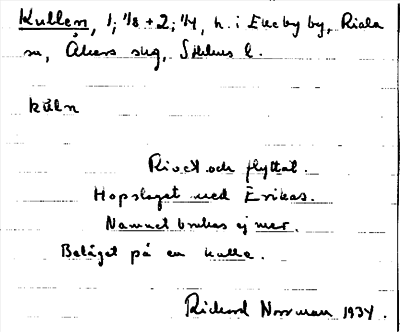 Kullen, 1; 1/8 + 2; 1/4, h. i Eneby by, Riala
sn, Åkers skg, Sthlms l.
kúln
Rivet och flyttat.
Hopslaget med Erikas.
Namnet brukas ej mer.
Beläget på en kulle.
Rickard Norrman 1934.